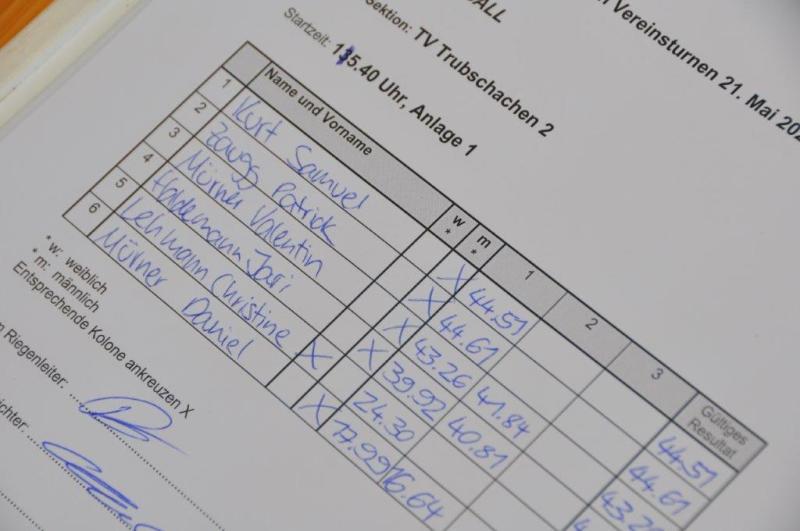 Vereinsturnen 21. Mai 202
ALL
Sektion: TV Trubschachen 2
Startzeit: 15.40 Uhr, Anlage 1
Name und Vorname w * m * 1 2 3 Gültiges Resultat
1 Kurt Samuel X 44.51 44.51
2 Zaugg Patrick X 44.61 44.61
3 Mürner Valentin X 43.26 41.84 43.2
4 Haldemann Jari X 39.92 40.81 4
5 Lehmann Christine X 24.30
6 Mürner Daniel X 17.99 16.64
* w: weiblich
* m: männlich
Entsprechende Kolone ankreuzen X
Riegenleiter:
ichter: